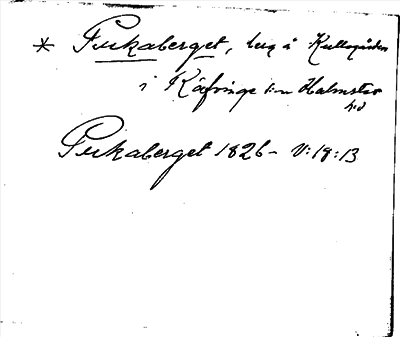 * Pukaberget, berg å Kullagården
i Käfvinge k:n Halmstad
h:d
Pukaberget 1826 - V:18:13